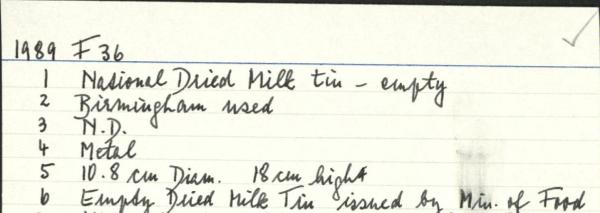 1989 F 36
1 National Dried Milk tin - empty
2 Birmingham used
3 N.D.
4 Metal
5 10.8 cm Diam. 18 cm high
6 Empty Dried Milk Tin issued by Min. of Food